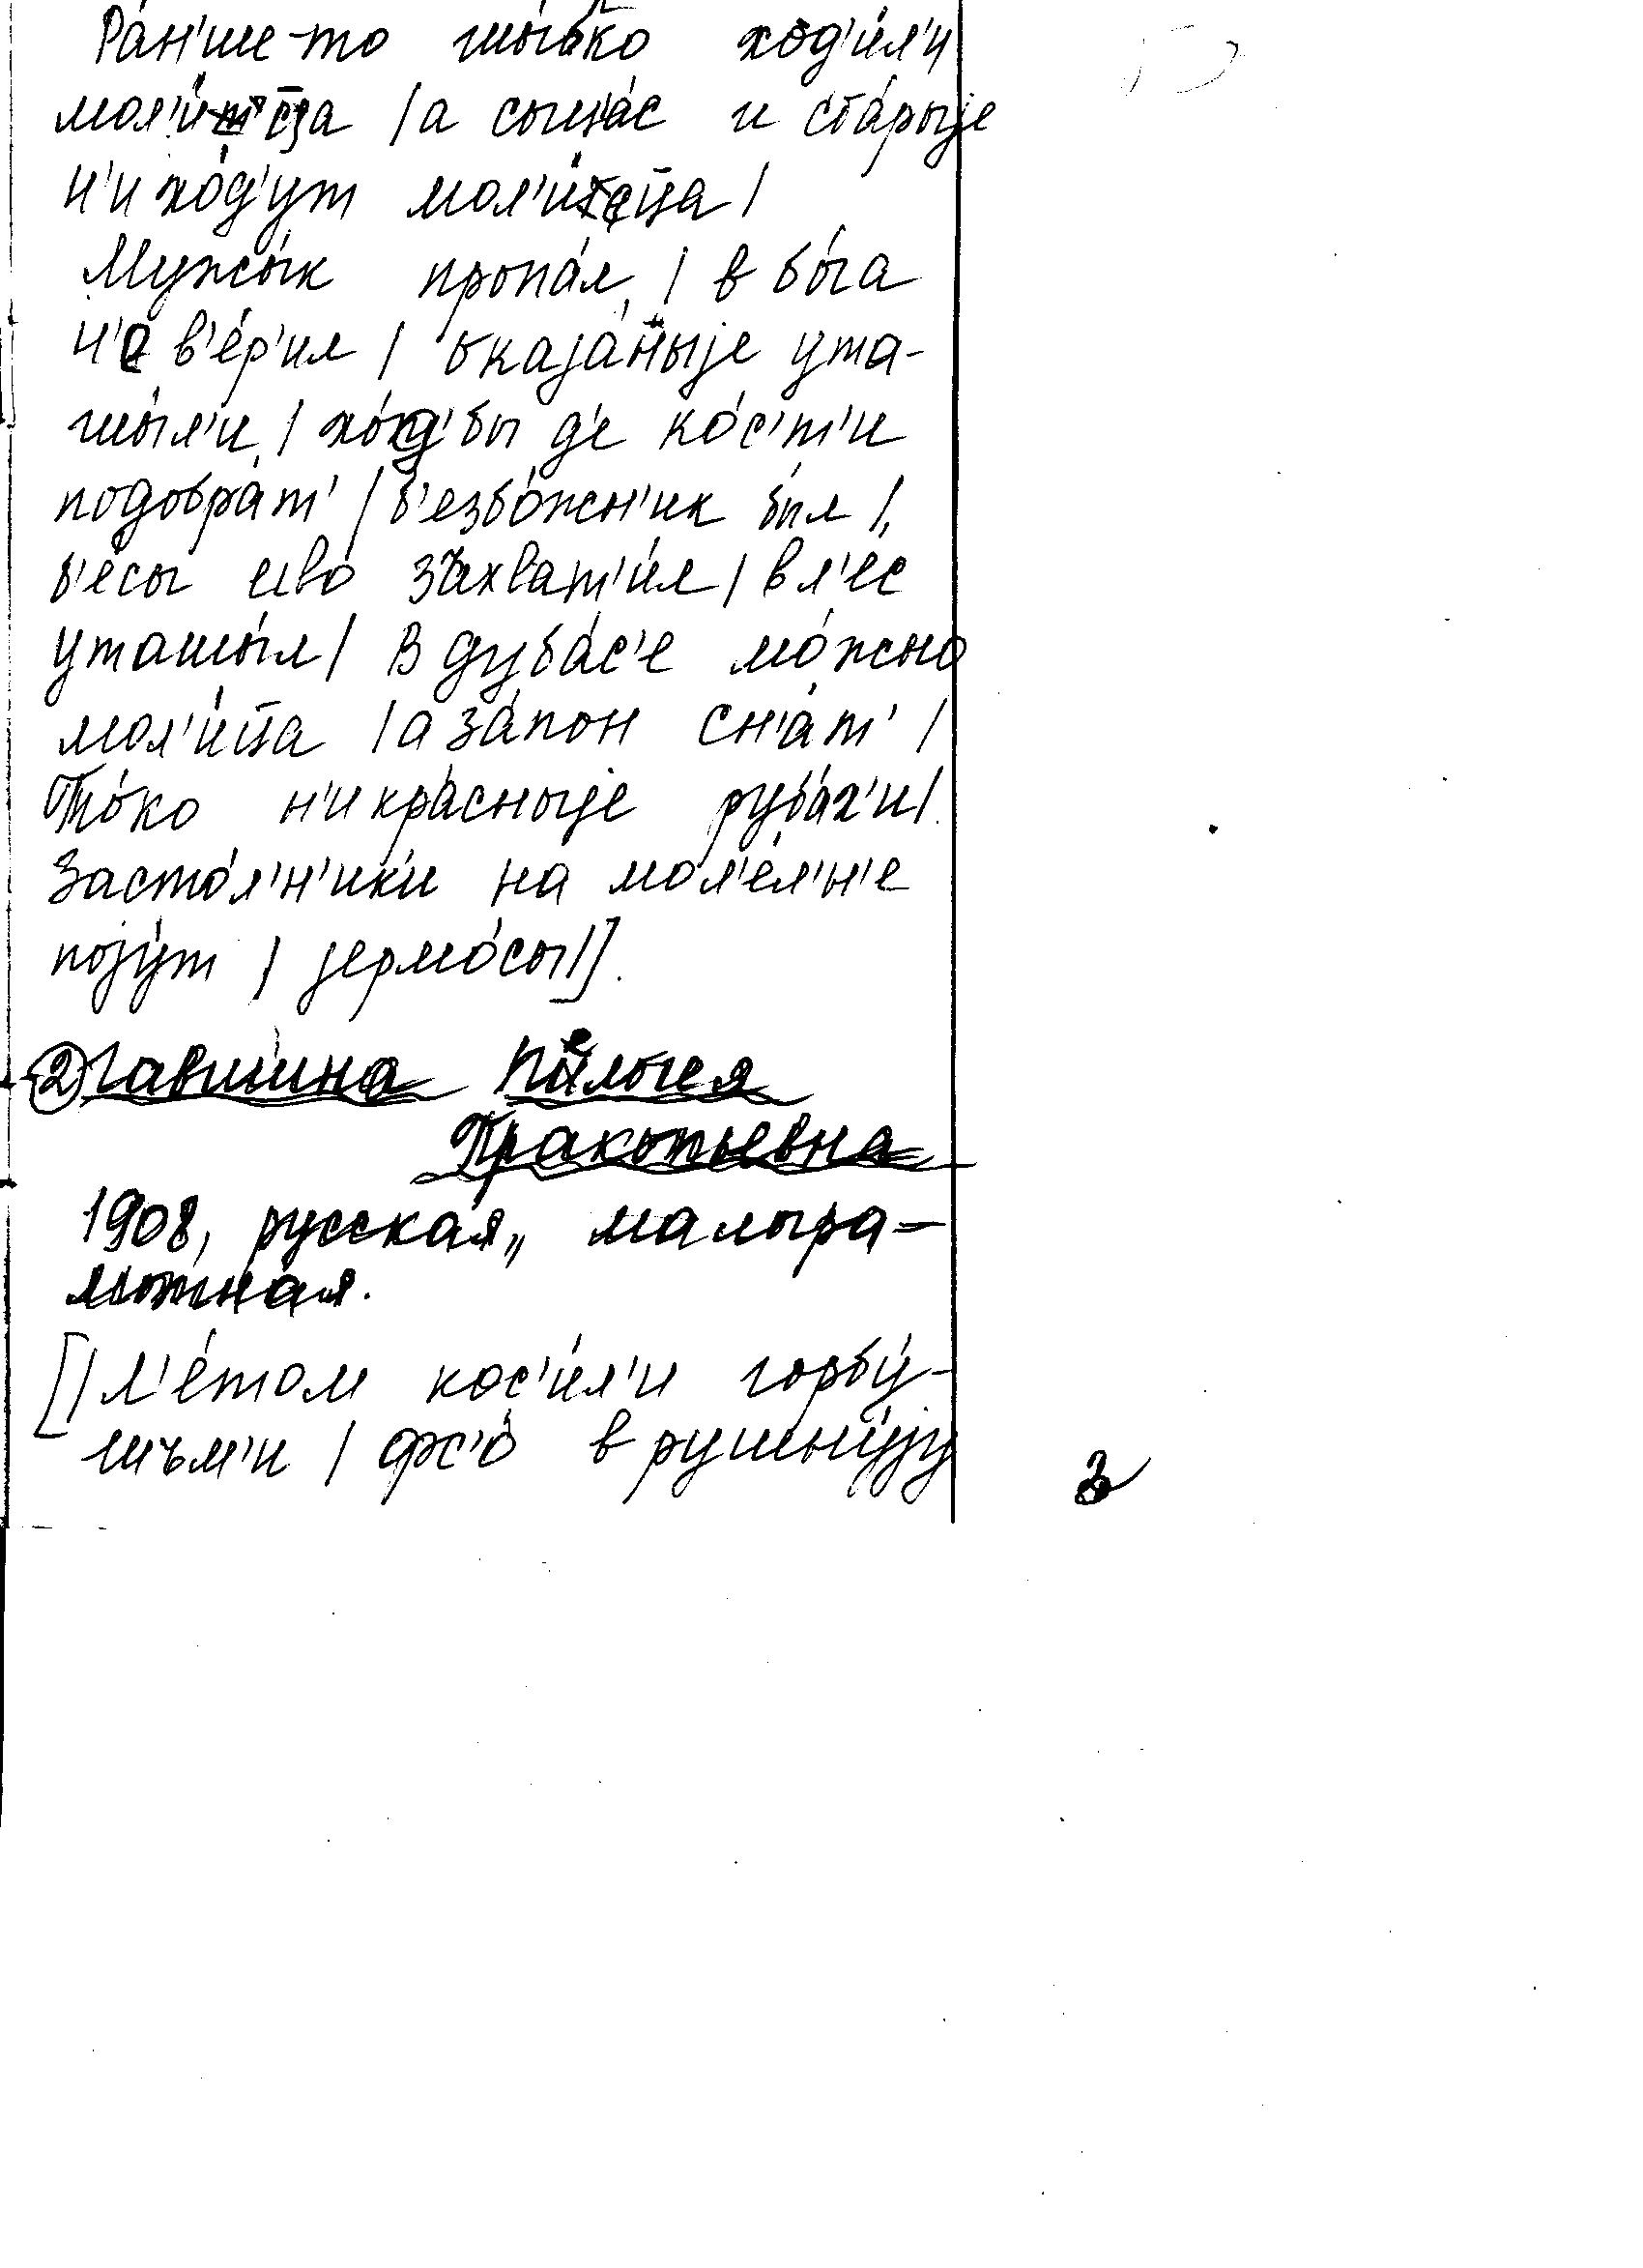 Ра́н'ше-то шы́бко ход'и́л'и
мол'и́ца / а сыча́с и ста́рыје
н'и хо́д'ут мол'и́ца /
Мужы́к пропа́л / в бо́га
н'е в'е́р'ил / окаја́ныје ута-
шы́л'и / хо́д' бы д'е ко́с'т'и
подобра́т' / б'езбо́жн'ик был /
б'е́сы ево́ захват'и́л / в л'е́с
уташы́л / В дуба́с'е мо́жно
мол'и́ца / а за́пон сн'а́т' /
То́ко н'и кра́сныје руба́х'и /
Засто́л'н'ики на мол'е́л'н'е
поју́т / јермо́сы /].
② Гавшина Пелогея
Пракопьевна
1908, русская, малогра-
мотная.
[/ л'е́том кос'и́л'и горбу́-
шъм'и / фс'о́ в рушну́ју
3